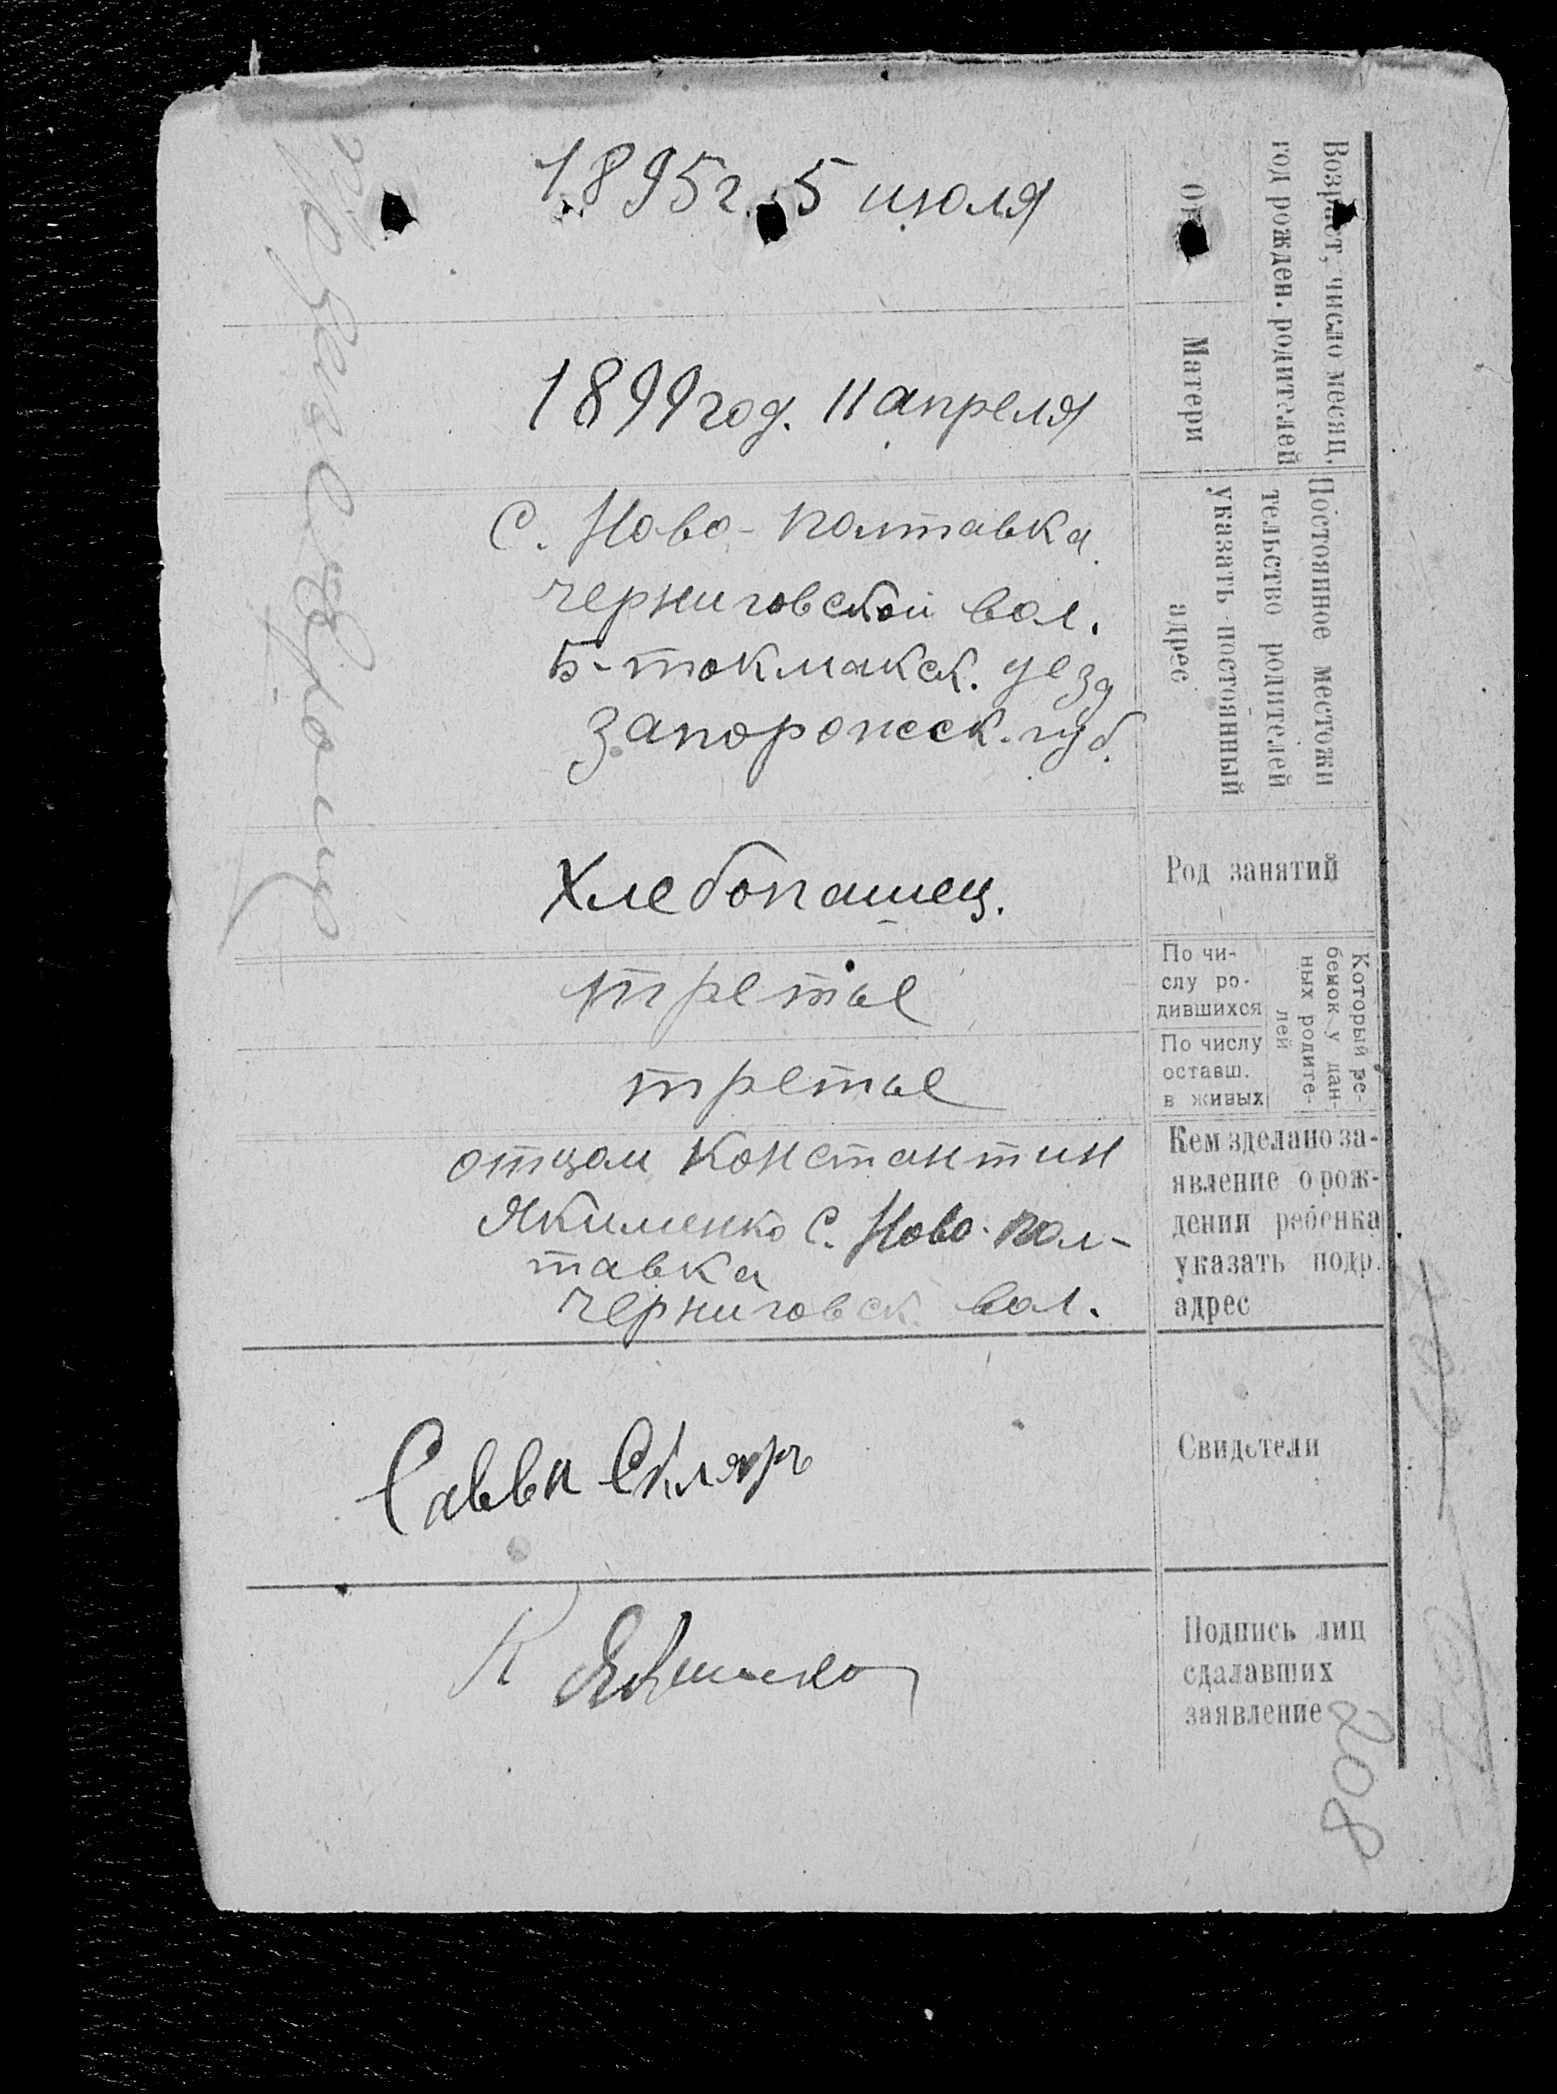 Возраст, число месяц,
год рожден. родителей
1895г. 5 июля
Матери
1899 год. 11 апреля
Постоянное местожи
тельство родителей
указать постоянный
адрес
С. Ново-Полтавка
Черниговской вол.
Б-токмакск. уезд
Запорожск. губ.
Род занятий
Хлебопашец.
Который ре-
бенок у дан-
ных родите-
лей
По чи-
слу ро-
дившихся
третье
По числу
оставш.
в живых
третье
Кем зделано за-
явление о рож-
дении ребенка
указать подр.
адрес
отцом Константин
Якименко С. Ново-Пол-
тавка
Черниговск. вол.
Свидетели
Савва Скляръ
Подпись лиц
сдалавших
заявление
К Якименко
208